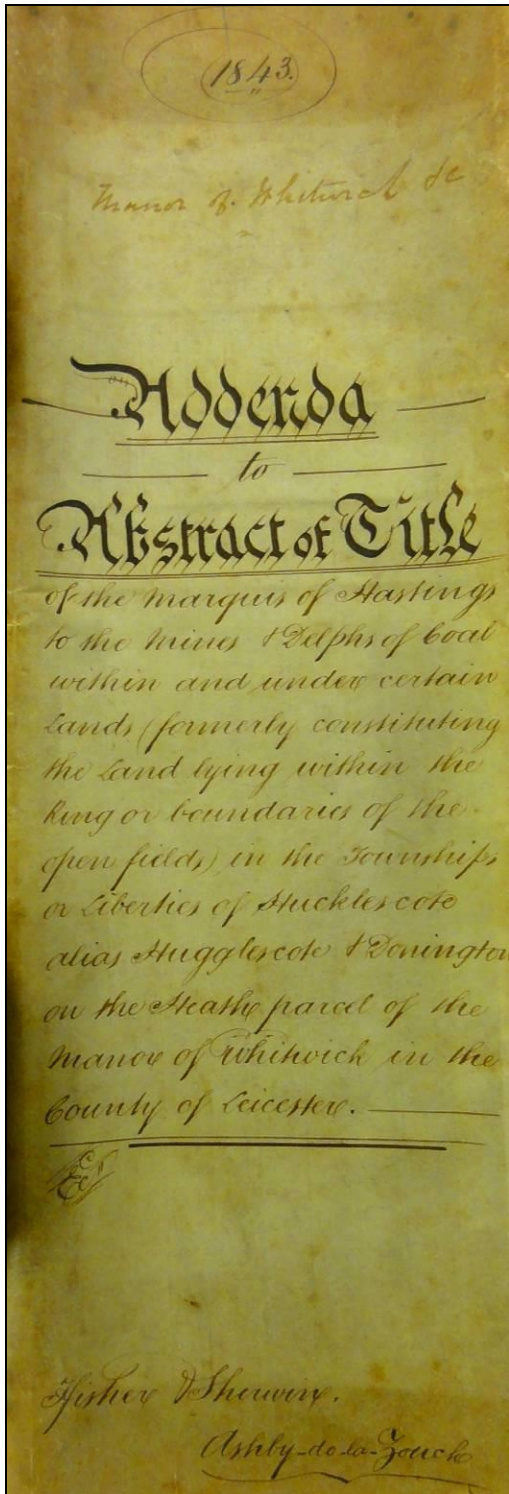 1843.
Manor of Whitwick &c
Addenda
to
Abstract of Title
of the Marquis of Hastings
to the Mines & Delphs of Coal
within and under certain
Lands (formerly constituting
the Land lying within the
Ring or boundaries of the
open fields) in the Townships
or Liberties of Hucklescote
alias Hugglescote & Donington
on the Heath parcel of the
Manor of Whitwick in the
County of Leicester.
Fisher & Sherwin.
Ashby-de-la-Zouch